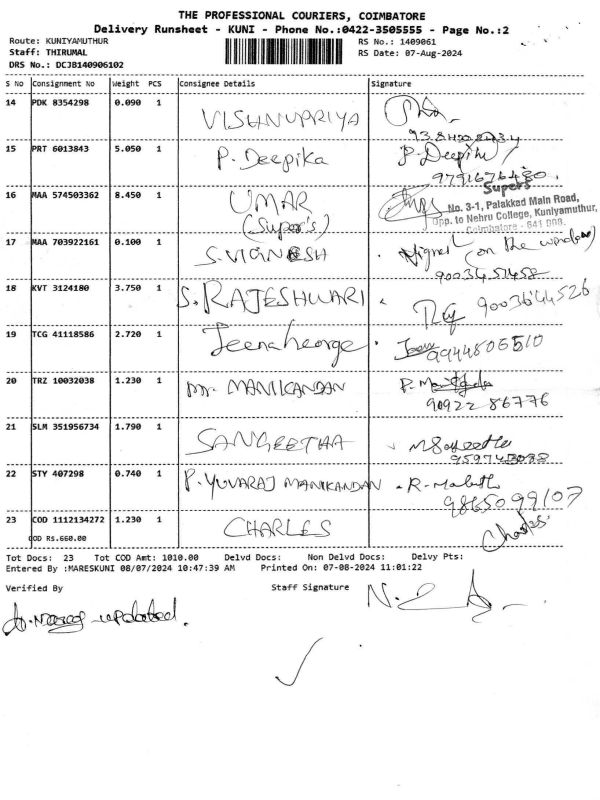 THE PROFESSIONAL COURIERS, COIMBATORE
Delivery Runsheet - KUNI - Phone No.:0422-3505555 - Page No.:2
Route: KUNIYAMUTHUR RS No.: 1409061
Staff: THIRUMAL RS Date: 07-Aug-2024
DRS No.: DCJB140906102
S No Consignment No Weight PCS Consignee Details Signature
14 PDK 8354298 0.090 1 VISHNUPRIYA
15 PRT 6013843 5.050 1 P. Deepika P. Deepika
9791676480
16 MAA 574503362 8.450 1 UMAR
(Super's)
Supers
No. 3-1, Palakkad Main Road,
Opp. to Nehru College, Kuniyamuthur,
Coimbatore - 641 008.
17 MAA 703922161 0.100 1 S. VIGNESH Vignesh (on the window)
9003451452
18 KVT 3124180 3.750 1 S. RAJESHWARI 9003644526
19 TCG 41118586 2.720 1 Jeenaheorge
9944806510
20 TRZ 10032038 1.230 1 MANIKANDAN
90922 86776
21 SLM 351956734 1.790 1 SANGEETHA
22 STY 407298 0.740 1 P. YUVARAJ MANIKANDAN
9865099107
23 COD 1112134272 1.230 1 CHARLES Charles
COD Rs.660.00
Tot Docs: 23 Tot COD Amt: 1010.00 Delvd Docs: Non Delvd Docs: Delvy Pts:
Entered By :MARESKUNI 08/07/2024 10:47:39 AM Printed On: 07-08-2024 11:01:22
Verified By Staff Signature
updated.